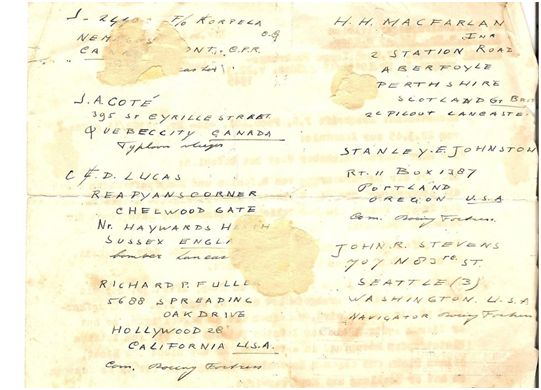 J-24 F/O KORPELA
ONT., C.P.R.
J. A. COTÉ
395 ST CYRILLE STREET
QUEBEC CITY CANADA
Typhoon
C/O D. LUCAS
REAPYANS CORNER
CHELWOOD GATE
Nr. HAYWARDS
SUSSEX
bomber
RICHARD P. FULLE
5688 SPREADING
OAK DRIVE
HOLLYWOOD 28
CALIFORNIA U.S.A.
Com. Boeing Fortress
H. H. MACFARLAN
2 STATION ROAD
ABERFOYLE
PERTHSHIRE
SCOTLAND
PILOT LANCASTE
STANLEY. E. JOHNSTON
RT. 11 BOX 1387
PORTLAND
OREGON U.S.A
Com. Boeing Fortress
JOHN. R. STEVENS
707 N 83 RD. ST.
SEATTLE (3)
WASHINGTON. U.S.A
NAVIGATOR Boeing Fortress